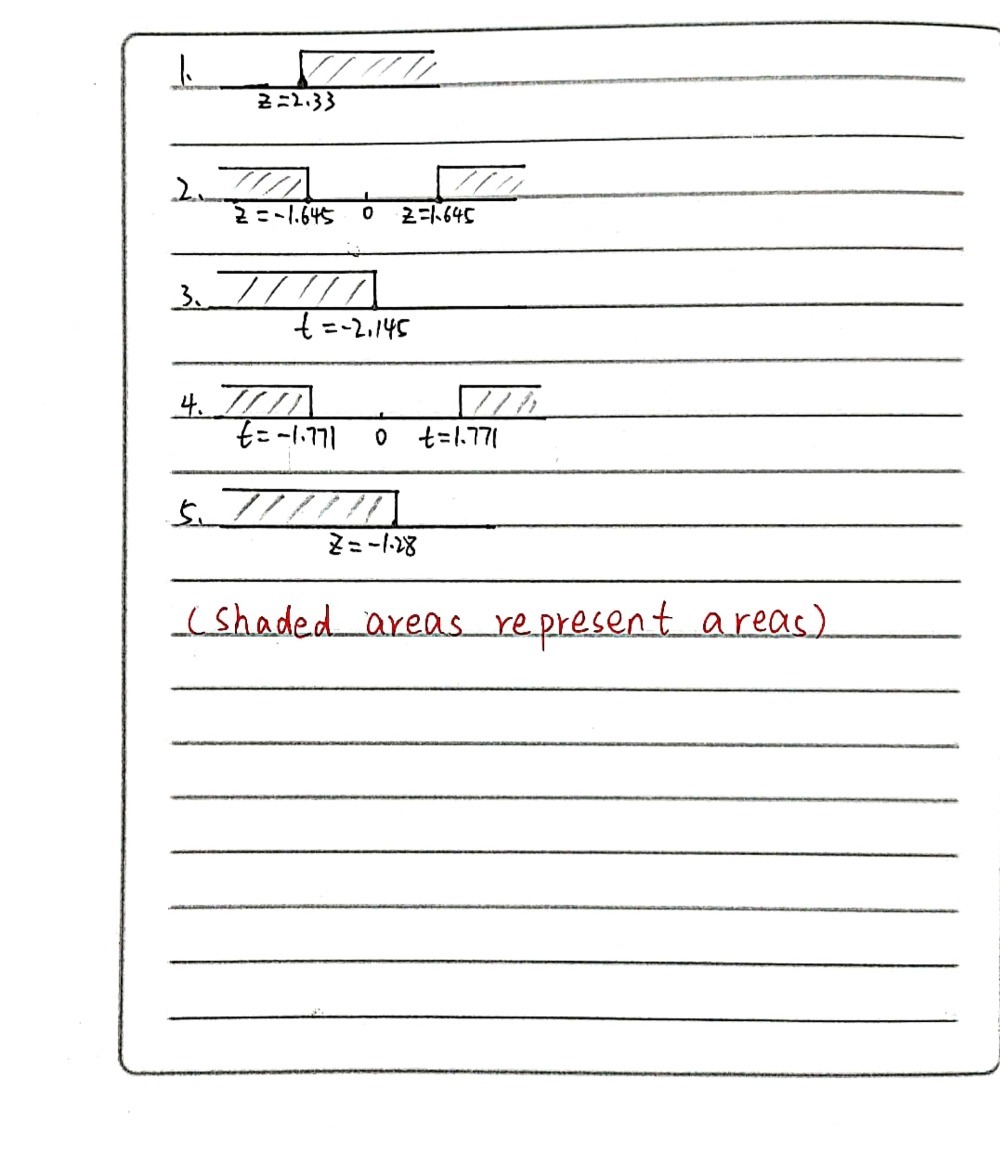 1.
z=2.33
2.
z=-1.645 0 z=1.645
3.
t=-2.145
4.
t=-1.771 0 t=1.771
5.
z=-1.28
(shaded areas represent areas)